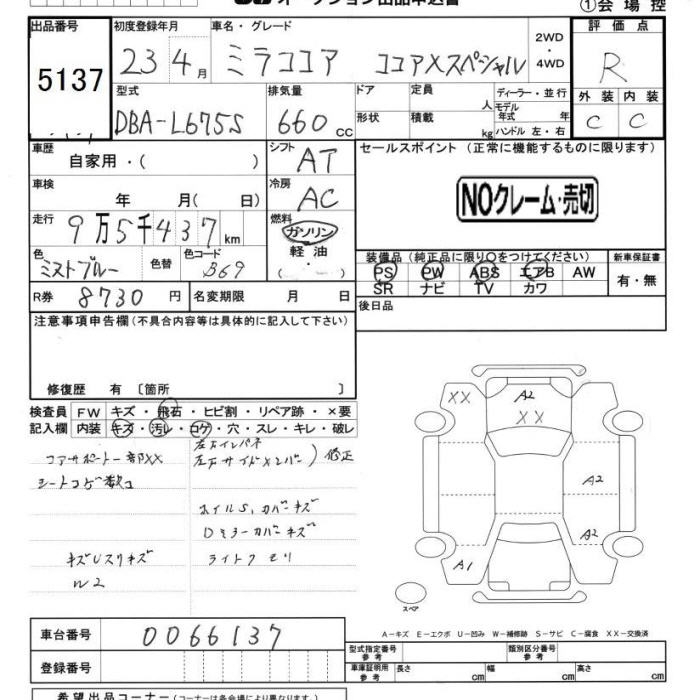 オークション出品申込書
①会場控
出品番号 初度登録年月 車名・グレード 2WD・4WD 評価点
5137 23 4月 ミラココア ココアXスペシャル R
型式 排気量 ドア 定員 人 ディーラー・並行 外装 内装
DBA-L675S 660cc 形状 積載 kg モデル年式 年 ハンドル 左・右 C C
車歴 自家用・( ) シフト AT セールスポイント (正常に機能するものに限ります)
車検 年 月( 日) 冷房 AC NOクレーム・売切
走行 9万5千437km 燃料 ガソリン 軽油 ( ・ )
色 ミストブルー 色替 色コード B69 装備品 (純正品に限り○をつけてください) 新車保証書
PS PW ABS エアB AW 有・無
SR ナビ TV カワ
R券 8730円 名変期限 月 日 後日品
注意事項申告欄 (不具合内容等は具体的に記入して下さい)
修復歴 有 〔箇所 〕
検査員 FW キズ・飛石・ヒビ割・リペア跡・×要
記入欄 内装 キズ・汚レ・コゲ・穴・スレ・キレ・破レ
コアサポート一部XX
左右インパネ
左右サイドメンバー ) 修正
シートコゲ数コ
ホイルS、カバーキズ
Dミラーカバーキズ
キズUスリキズ ライトクモリ
W2
XX A2
XX
A2
A2
A1
スペア
A-キズ E-エクボ U-凹み W-補修跡 S-サビ C-腐食 XX-交換済
車台番号 0066137
登録番号
型式指定番号 参考 類別区分番号 参考
車庫証明用 参考 長さ cm 幅 cm 高さ cm
希望出品コーナー (コーナーは各会場により異なります。)